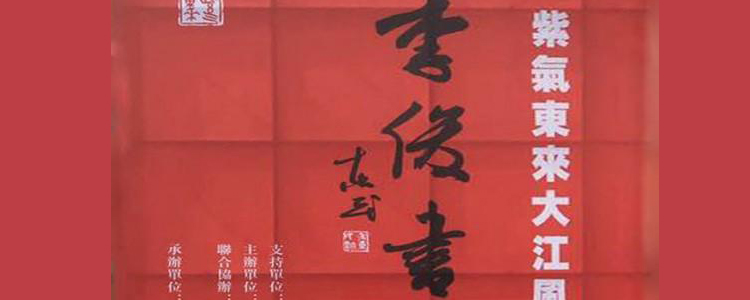 紫氣東來大江風
李俊書
支持單位：
主辦單位：
聯合協辦：
承辦單位：